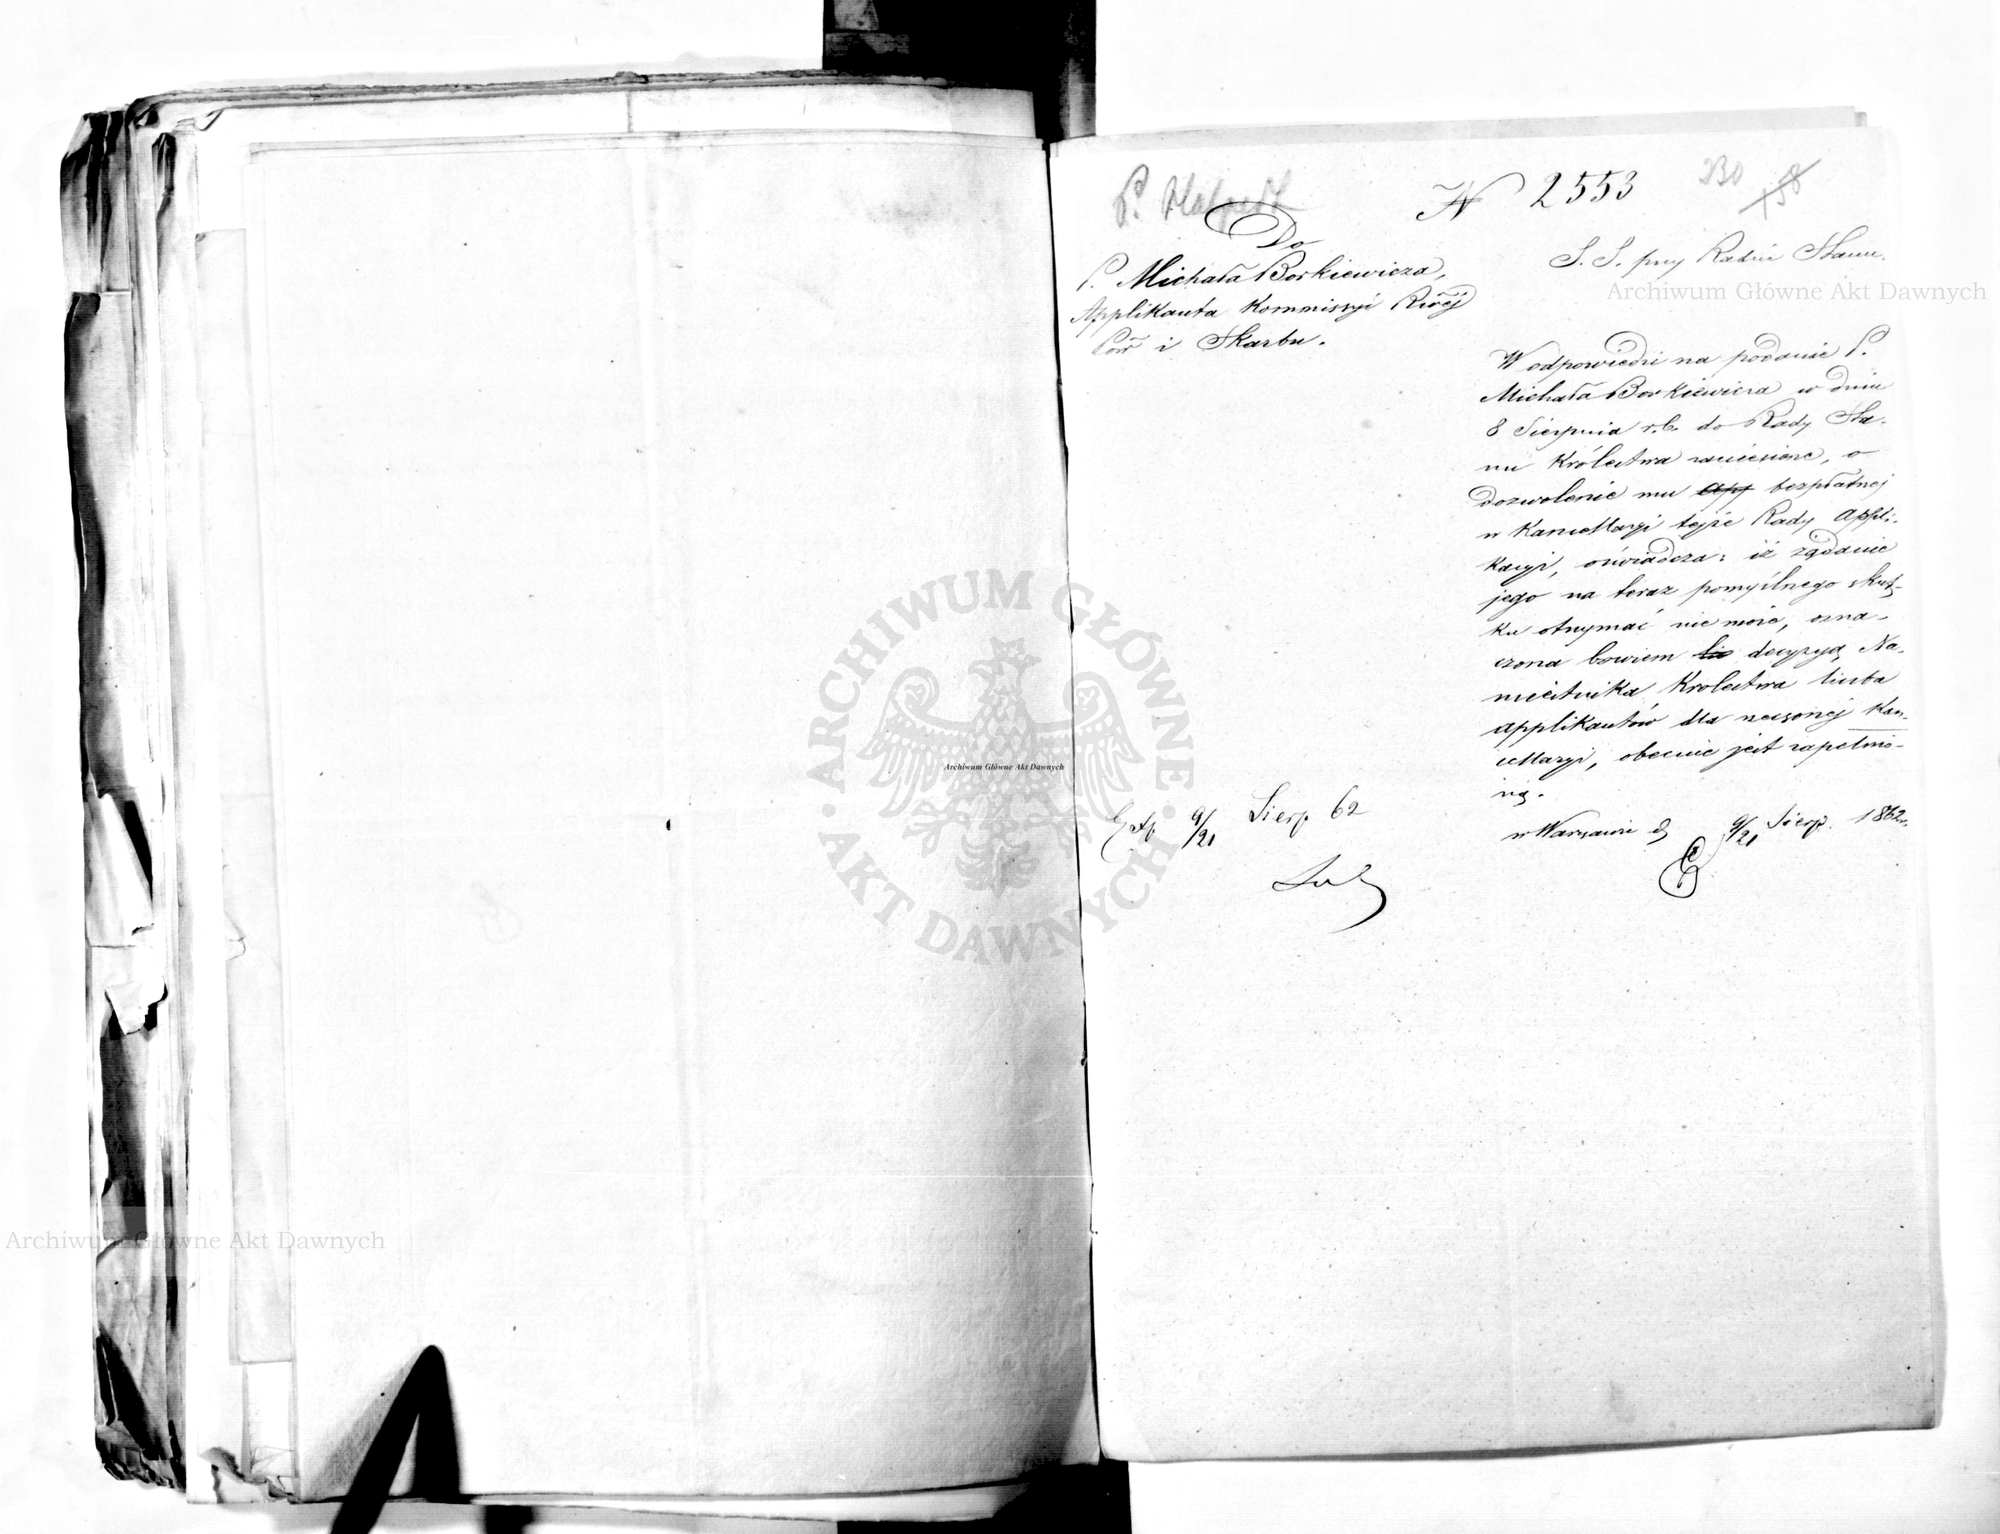 N 2553
230
158
Do
P. Michała Borkiewicza,
Applikanta Kommissyi Rwéj
Pow i Skarbu.
S. S. przy Radzie Stanu.
W odpowiedzi na podanie P.
Michała Borkiewicza w dniu
8 Sierpnia r. b. do Rady Sta-
nu Królestwa zaniesione, o
dozwolenie mu app bezpłatnej
w Kancellaryi tejże Rady appli-
kacyi, oświadcza: iż żądanie
jego na teraz pomyślnego skut-
ku otrzymać nie może, ozna-
czona bowiem decyzyą Na-
miestnika Królestwa liczba
applikantów dla rzeczonéj Kan-
cellaryi, obecnie jest zapełnio-
ną.
w Warszawie d 9/21 Sierp. 1862 r.
Exp 9/21 Sierp 62
ARCHIWUM GŁÓWNE AKT DAWNYCH
Archiwum Główne Akt Dawnych
Archiwum Główne Akt Dawnych
Archiwum Główne Akt Dawnych